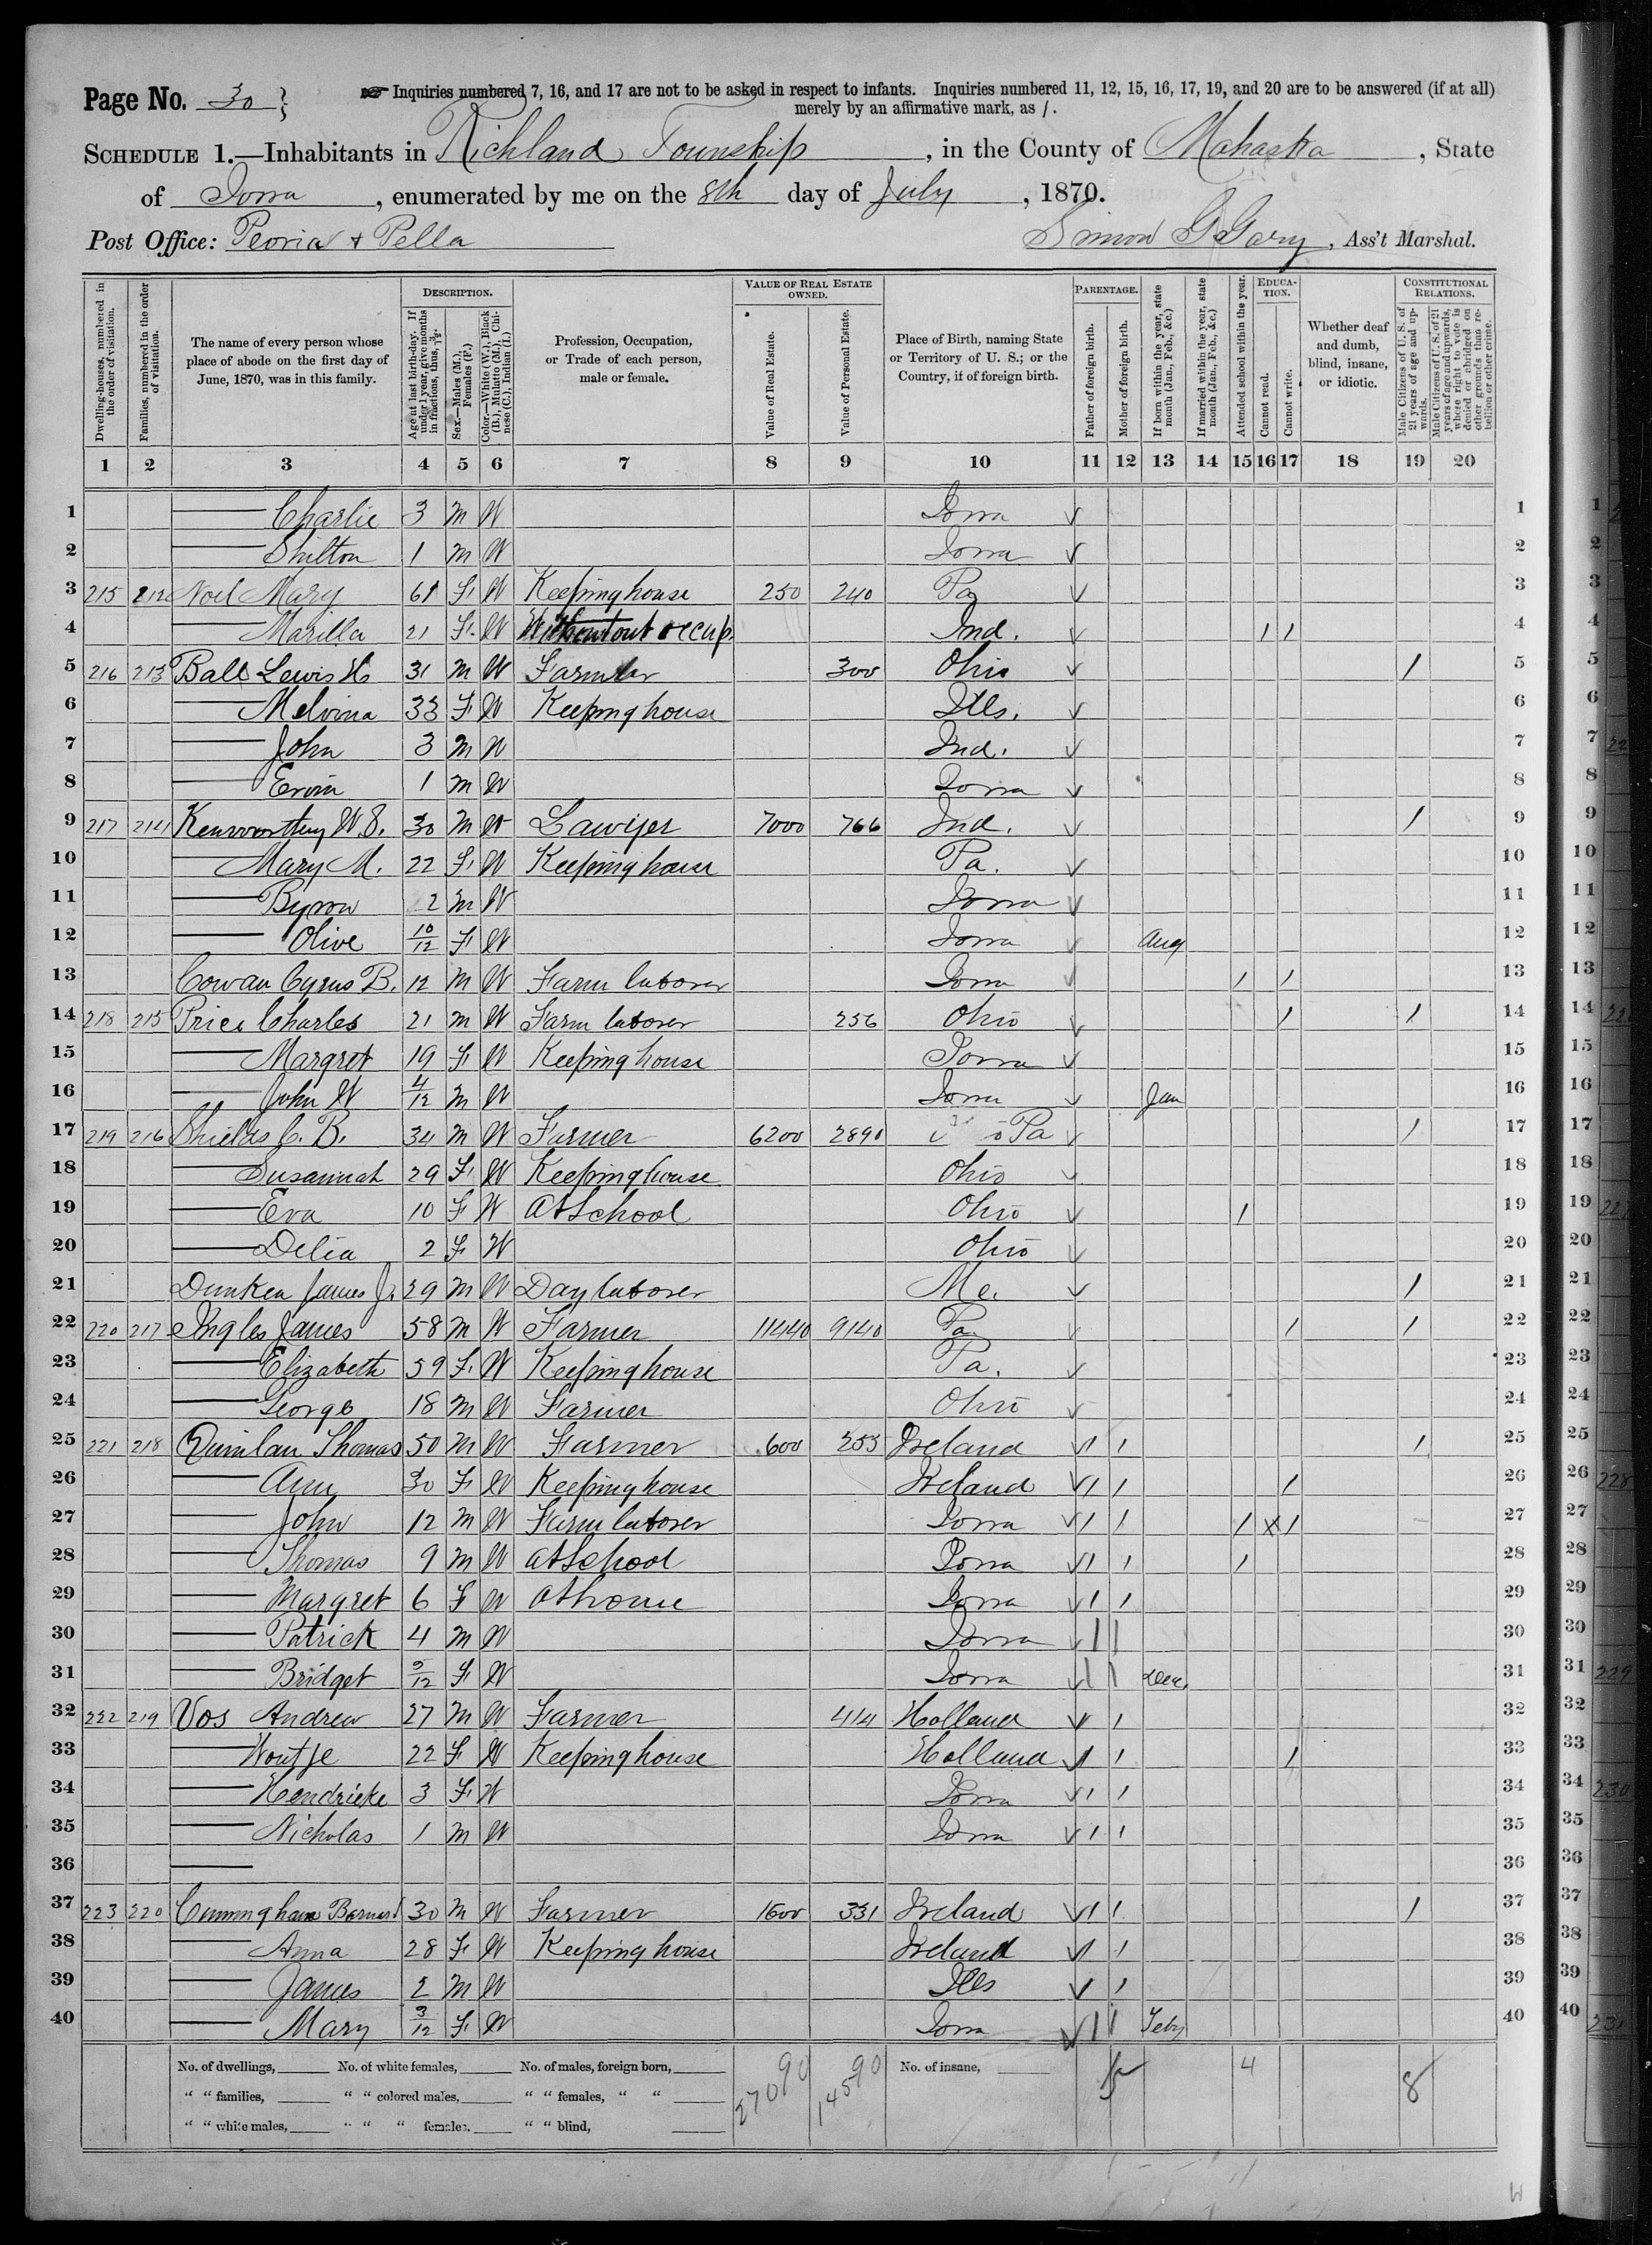 Page No. 30
Inquiries numbered 7, 16, and 17 are not to be asked in respect to infants. Inquiries numbered 11, 12, 15, 16, 17, 19, and 20 are to be answered (if at all)
merely by an affirmative mark, as /.
SCHEDULE 1.—Inhabitants in Richland Township, in the County of Mahaska, State
of Iowa, enumerated by me on the 8th day of July, 1870.
Post Office: Peoria + Pella
Simon G Gary, Ass't Marshal.
Dwelling-houses, numbered in the order of visitation.
Families, numbered in the order of visitation.
The name of every person whose place of abode on the first day of June, 1870, was in this family.
DESCRIPTION.
Age at last birth-day. If under 1 year, give months in fractions, thus, 3/12.
Sex.—Males (M.), Females (F.)
Color.—White (W.), Black (B.), Mulatto (M.), Chinese (C.), Indian (I.)
Profession, Occupation, or Trade of each person, male or female.
VALUE OF REAL ESTATE OWNED.
Value of Real Estate.
Value of Personal Estate.
Place of Birth, naming State or Territory of U. S.; or the Country, if of foreign birth.
PARENTAGE.
Father of foreign birth.
Mother of foreign birth.
If born within the year, state month (Jan., Feb., &c.)
If married within the year, state month (Jan., Feb., &c.)
Attended school within the year.
EDUCATION.
Cannot read.
Cannot write.
Whether deaf and dumb, blind, insane, or idiotic.
CONSTITUTIONAL RELATIONS.
Male Citizens of U. S. of 21 years of age and upwards.
Male Citizens of U. S. of 21 years of age and upwards, where right to vote is denied or abridged on other grounds than rebellion or other crime.
1 2 3 4 5 6 7 8 9 10 11 12 13 14 15 16 17 18 19 20
1 — Charlie 3 M W Iowa 1
2 — Shilton 1 M W Iowa 2
3 215 212 Noel Mary 61 F W Keeping house 250 240 Pa 3
4 — Marilla 21 F W Without occup. Ind. / / 4
5 216 213 Ball Lewis H 31 M W Farmer 300 Ohio / 5
6 — Melvina 33 F W Keeping house Ills. 6
7 — John 3 M W Ind. 7
8 — Ervin 1 M W Iowa 8
9 217 214 Kenworthy W.S. 30 M W Lawyer 7000 766 Ind. / 9
10 — Mary M. 22 F W Keeping house Pa. 10
11 — Byron 2 M W Iowa 11
12 — Olive 10/12 F W Iowa Aug 12
13 Cowan Cyrus B. 12 M W Farm laborer Iowa / / 13
14 218 215 Price Charles 21 M W Farm laborer 256 Ohio / / 14
15 — Margret 19 F W Keeping house Iowa 15
16 — John W 4/12 M W Iowa Jan 16
17 219 216 Shields C. B. 34 M W Farmer 6200 2890 Pa / 17
18 — Susannah 29 F W Keeping house Ohio 18
19 — Eva 10 F W At School Ohio / 19
20 — Delia 2 F W Ohio 20
21 Dunken James Jr. 29 M W Day laborer Me. / 21
22 220 217 Ingles James 58 M W Farmer 11440 9140 Pa / / 22
23 — Elizabeth 59 F W Keeping house Pa. 23
24 — George 18 M W Farmer Ohio 24
25 221 218 Quinlan Thomas 50 M W Farmer 600 253 Ireland / / / 25
26 — Ann 30 F W Keeping house Ireland / / / 26
27 — John 12 M W Farm laborer Iowa / / / X / 27
28 — Thomas 9 M W At School Iowa / / / 28
29 — Margret 6 F W At home Iowa / / 29
30 — Patrick 4 M W Iowa / / 30
31 — Bridget 5/12 F W Iowa / / Dec. 31
32 222 219 Vos Andrew 27 M W Farmer 414 Holland / / 32
33 — Woutje 22 F W Keeping house Holland / / / 33
34 — Hendrieke 3 F W Iowa / / 34
35 — Nicholas 1 M W Iowa / / 35
36 — 36
37 223 220 Cunningham Barnard 30 M W Farmer 1600 331 Ireland / / / 37
38 — Anna 28 F W Keeping house Ireland / / 38
39 — James 2 M W Ills / / 39
40 — Mary 3/12 F W Iowa / / Feby 40
No. of dwellings, No. of white females, No. of males, foreign born, 27090 14590 No. of insane, 4 8
" " families, " " colored males, " " females, " "
" " white males, " " " females, " " blind,